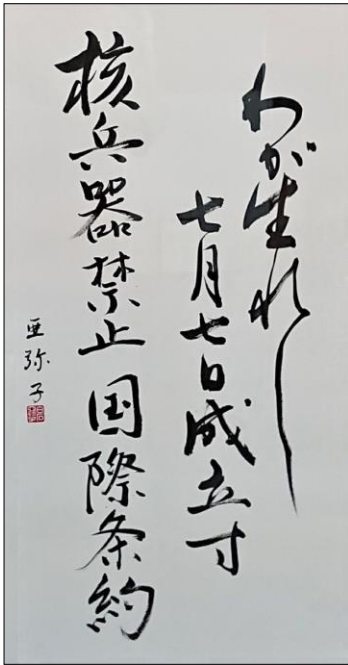 わが生れし
七月七日成立寸
核兵器禁止国際条約
亜弥子